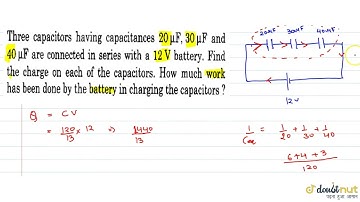 Three capacitors having capacitances 20 µF, 30 µF and
40 µF are connected in series with a 12 V battery. Find
the charge on each of the capacitors. How much work
has been done by the battery in charging the capacitors ?
20µF 30µF 40µF
12V
Q = CV
= 120/13 × 12 ⇒ 1440/13
1/Ceq = 1/20 + 1/30 + 1/40
6+4+3/120
doubtnut